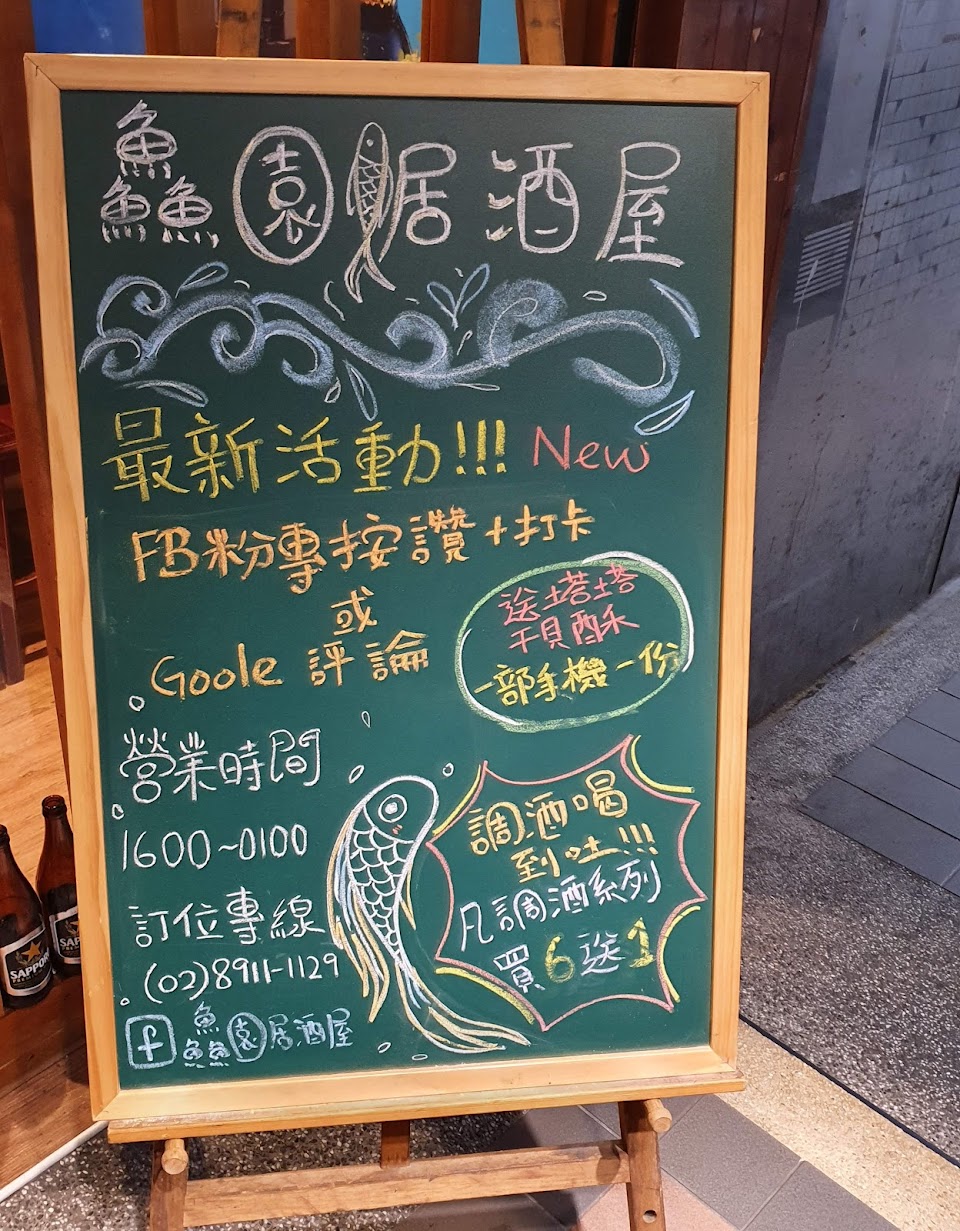 鱻園居酒屋
最新活動!!! New
FB粉專按讚+打卡
或
Goole 評論
送塔塔
干貝酥
一部手機一份
營業時間
1600~0100
訂位專線
(02)8911-1129
f 鱻園居酒屋
調酒喝
到吐!!!
凡調酒系列
買6送1
SAPPORO
SAP